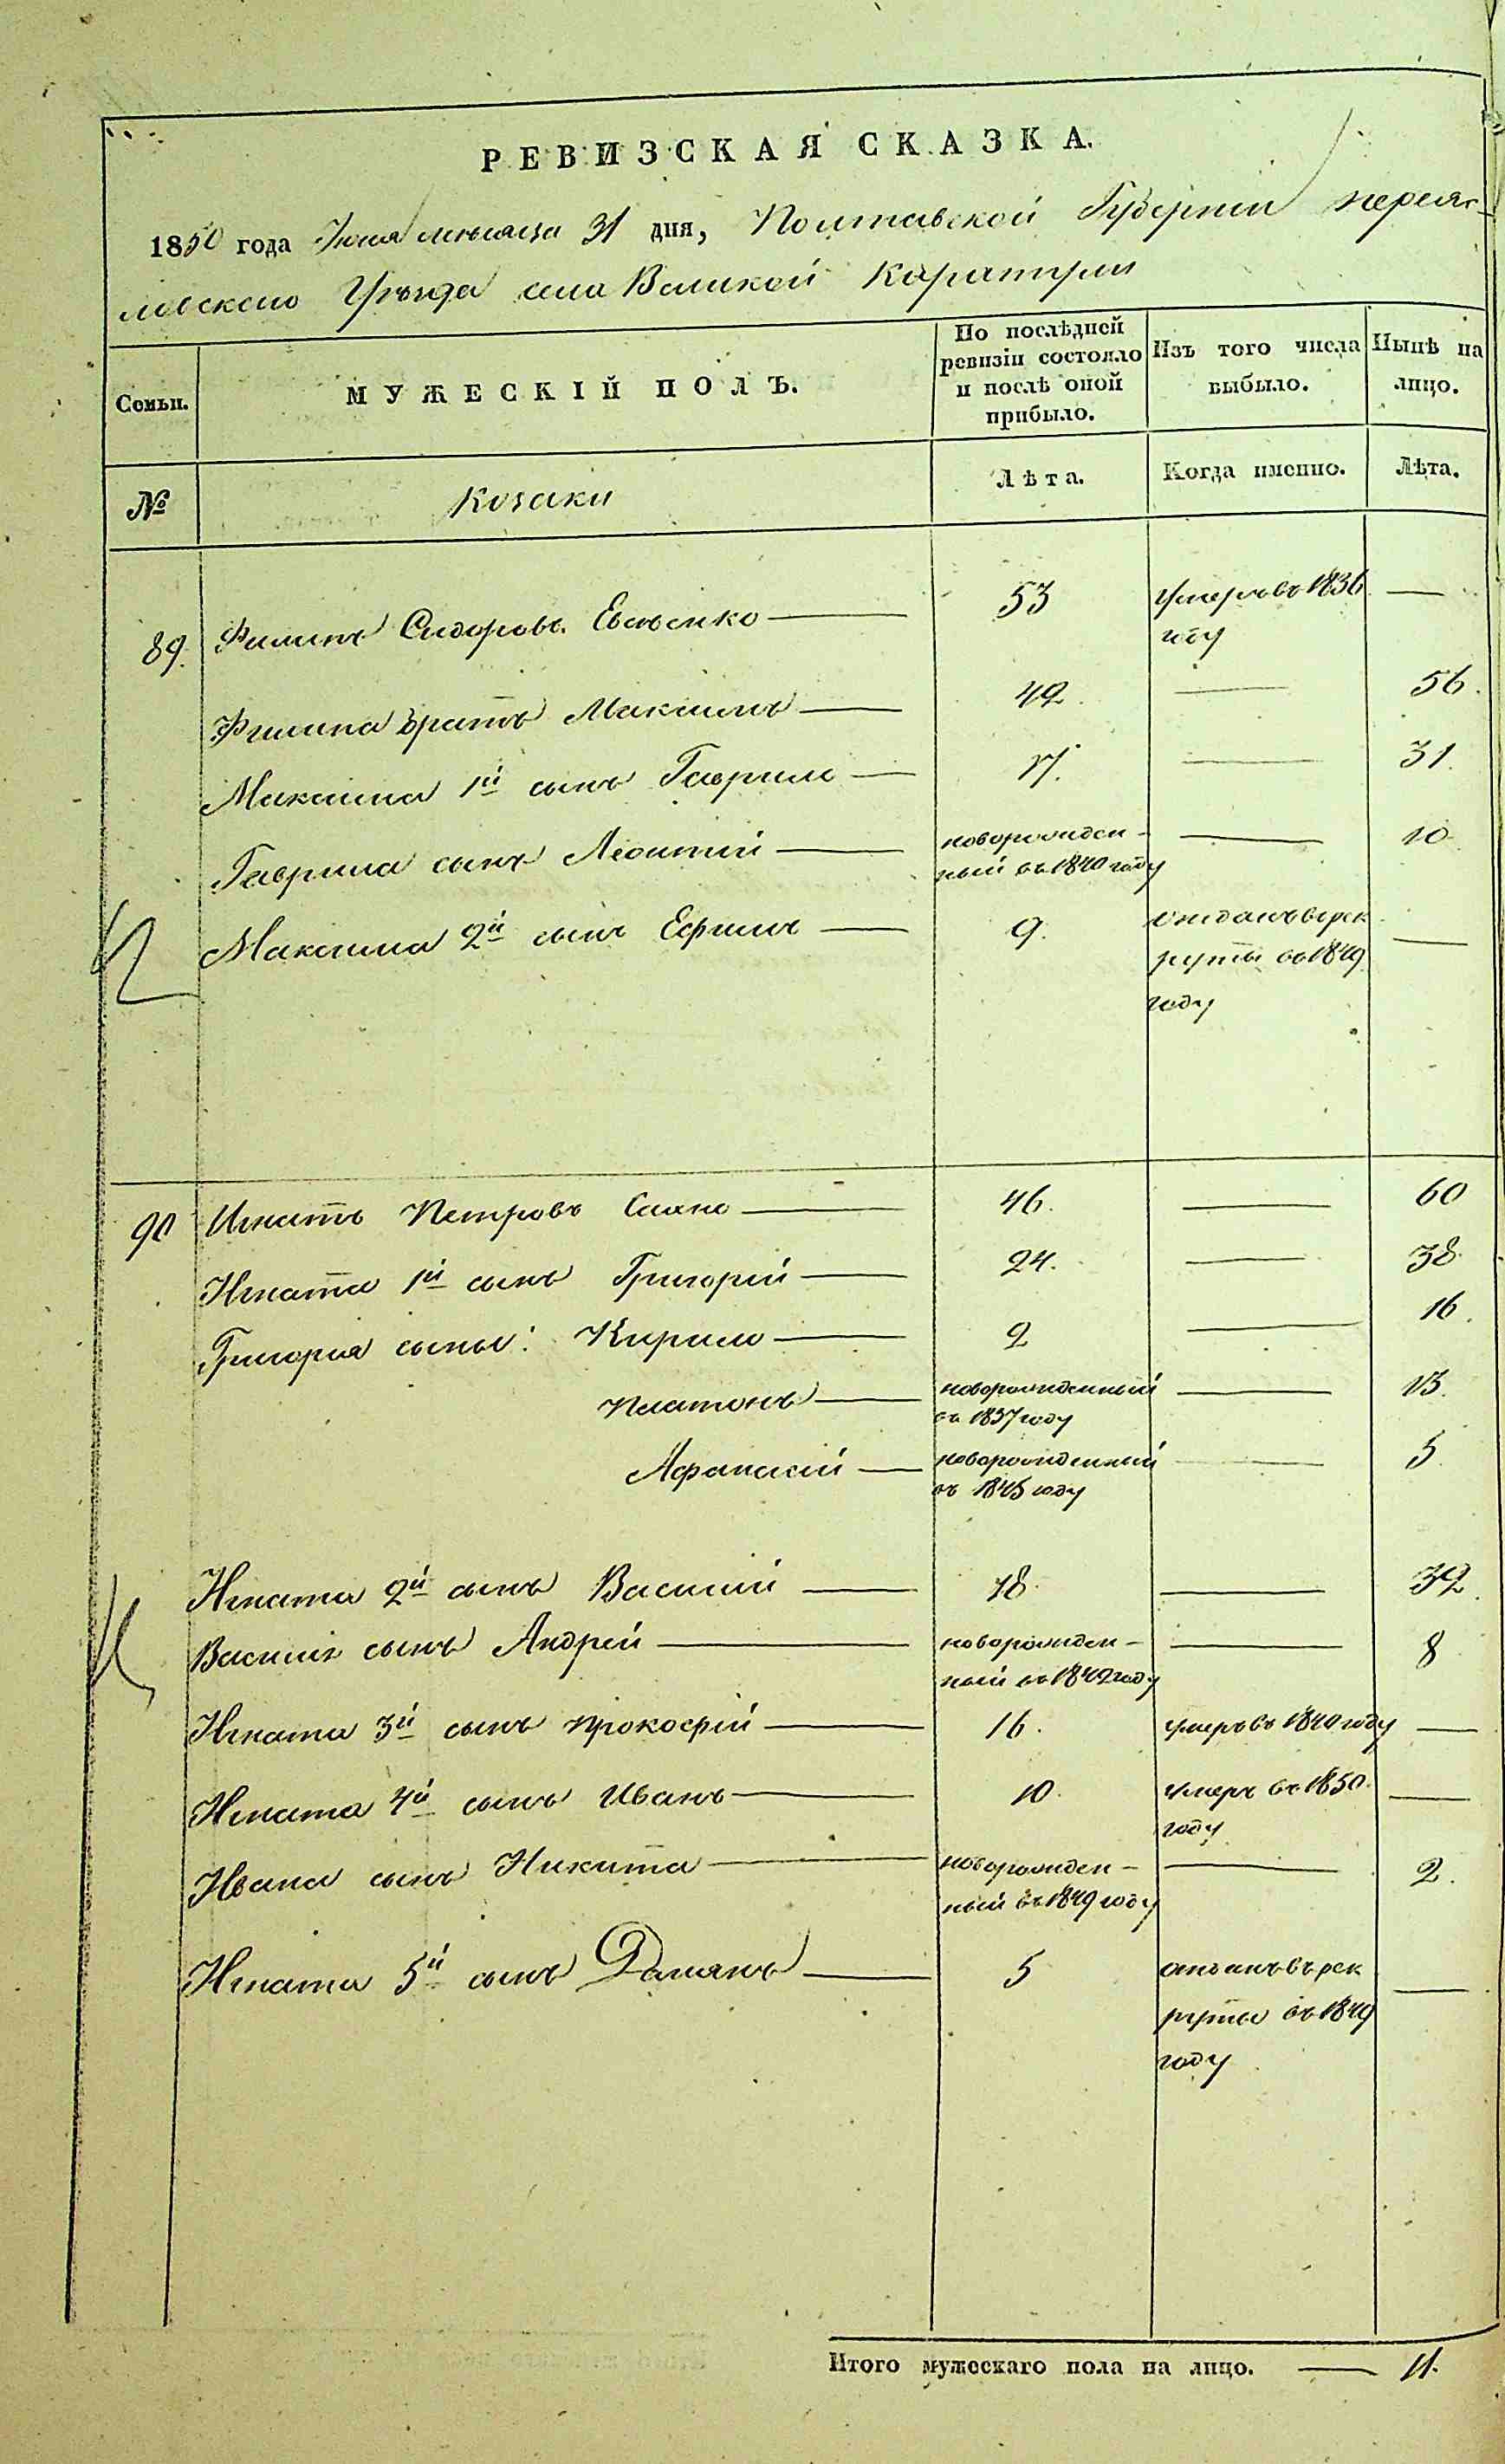 РЕВИЗСКАЯ СКАЗКА.
1850 года Июля месяца 31 дня, Полтавской Губернии переяс-
лавского Уезда села Великой Каратули
Семьи.
МУЖЕСКІЙ ПОЛЪ.
По послѣдней ревизіи состояло и послѣ оной прибыло.
Изъ того числа выбыло.
Нынѣ на лицо.
№
Козаки
Лѣта.
Когда именно.
Лѣта.
89. Филипъ Сидоровъ Евсѣенко — 53 умеръ въ 1836 —
году
Филипа братъ Максимъ — 42 — 56.
Максима 1й сынъ Гаврило — 17. — 31.
Гаврила сынъ Леонтій — новорожден- — 10
ный въ 1840 году
Максима 2й сынъ Ефимъ — 9. отданъ въ рек —
руты въ 1849
году
90 Игнатъ Петровъ — 46. — 60
Игната 1й сынъ Григорій — 24. — 38.
Григория сыны: Кирило — 2 — 16.
Платонъ — новорожденный — 13.
въ 1837 году
Афанасий — новорожденный — 5
въ 1845 году
Игната 2й сынъ Василий — 18. — 32.
Василия сынъ Андрей — новорожден- — 8
ный въ 1842 году
Игната 3й сынъ Прокофій — 16. умеръ въ 1840 году —
Игната 4й сынъ Иванъ — 10. умеръ въ 1850 —
году
Ивана сынъ Никита — новорожден- — 2.
ный въ 1849 году
Игната 5й сынъ Дамянъ — 5 отданъ въ рек —
руты въ 1849
году
Итого мужескаго пола на лицо. — 11.